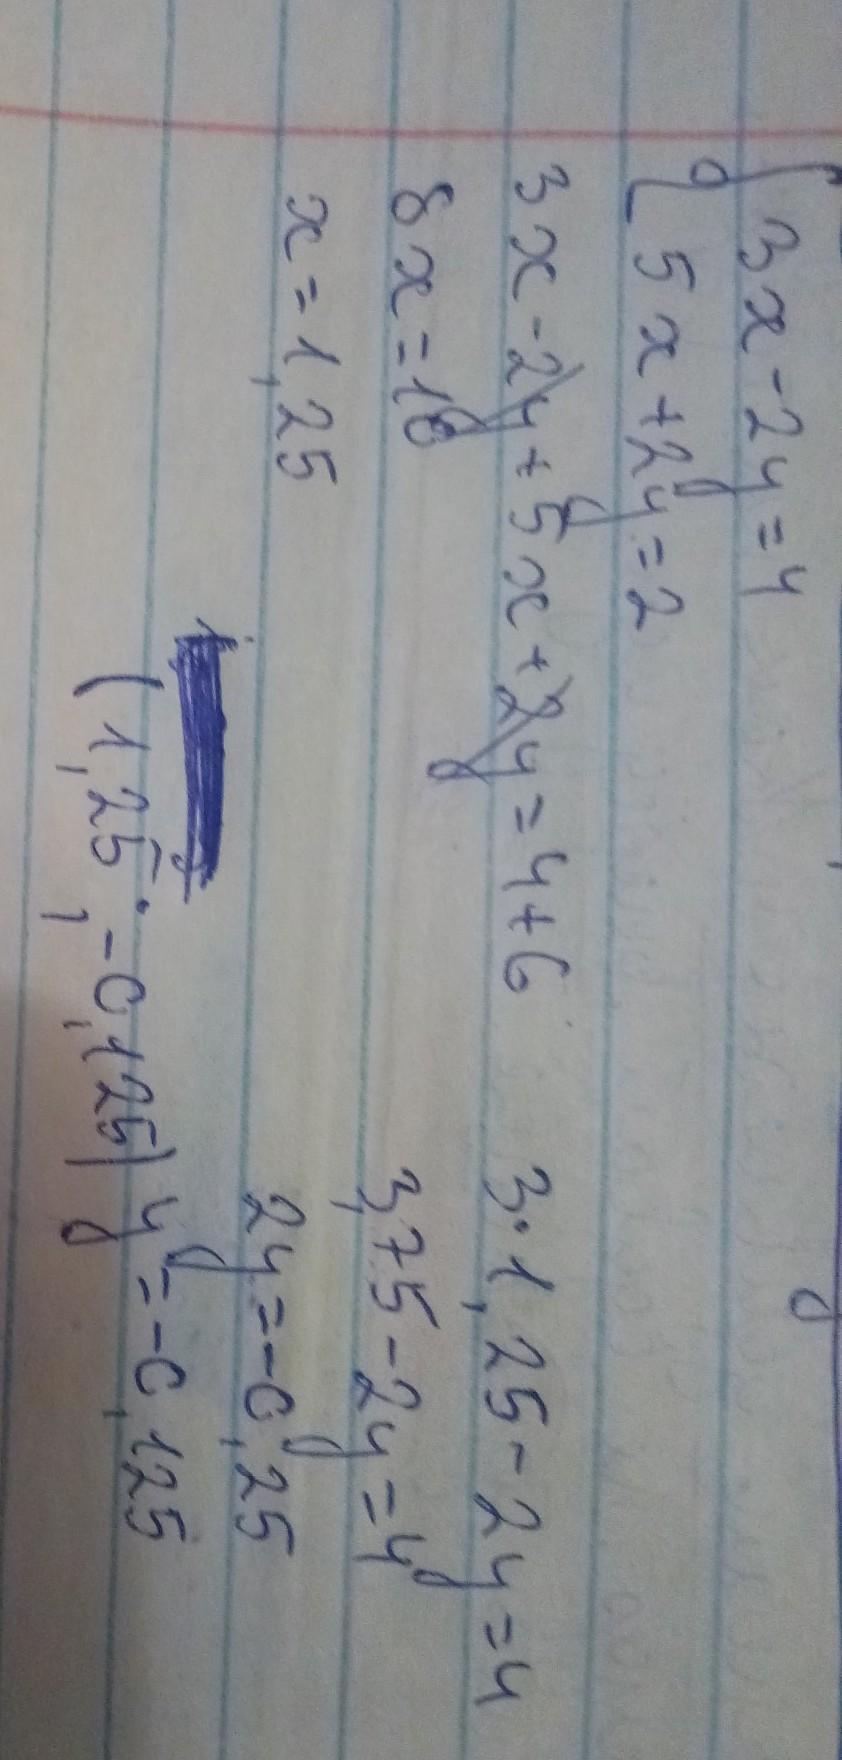 3x-2y=4
5x+2y=2
3x-2y+5x+2y=4+6
8x=10
x=1,25
3·1,25-2y=4
3,75-2y=4
2y=-0,25
y=-0,125
(1,25;-0,125)